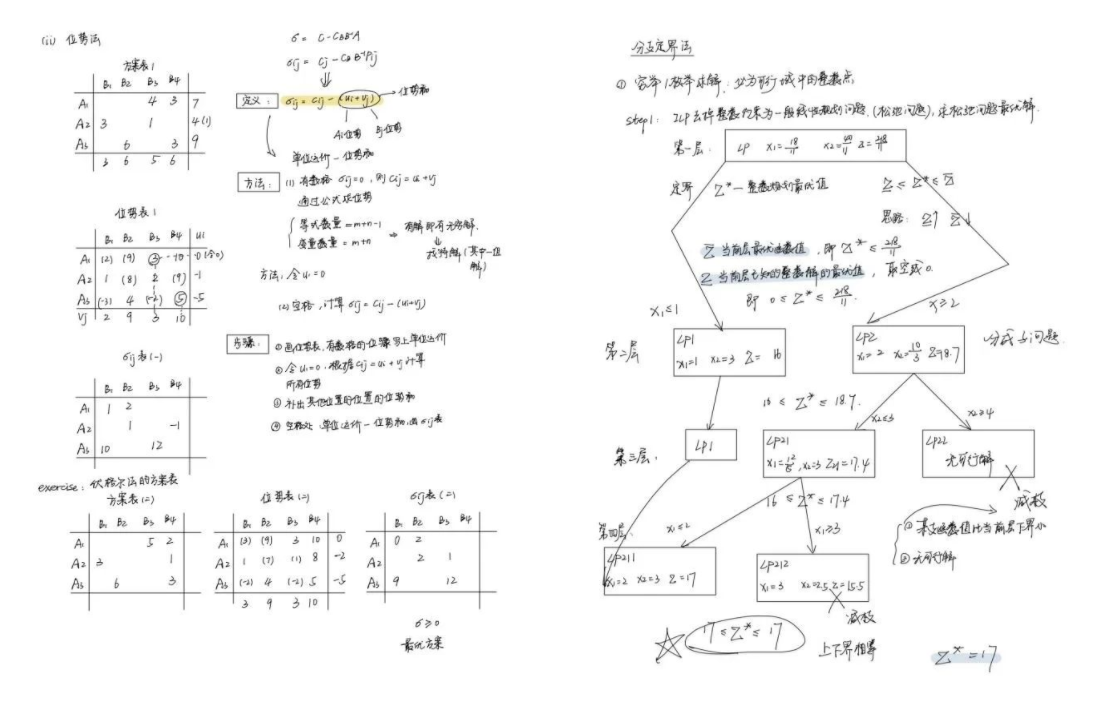 (ii) 位势法
方案表1
B1 B2 B3 B4
A1 4 3 7
A2 3 1 4(1)
A3 6 3 9
3 6 5 6
位势表1
B1 B2 B3 B4 ui
A1 (2) (9) 3 10 0(令0)
A2 1 (8) 2 (9) -1
A3 (-3) 4 (-2) 5 -5
vj 2 9 3 10
σij表(一)
B1 B2 B3 B4
A1 1 2
A2 1 -1
A3 10 12
σ = C-CBB⁻¹A
σij = Cj-CBB⁻¹Pij
定义: σij = Cij-(ui+vj) → 位势和
Ai位势 Bj位势
单位运价-位势和
方法: (1) 有数格 σij=0, 则 Cij=ui+vj
通过公式求位势
等式数量=m+n-1
变量数量=m+n
⇒ 有解即有无穷解.
找特解(其中一组解)
方法: 令u1=0
(2) 空格, 计算σij=Cij-(ui+vj)
步骤: ① 画位势表, 有数格的位置写上单位运价
② 令u1=0, 根据Cij=ui+vj计算
所有位势
③ 补出其他位置的位置的位势和
④ 空格处 单位运价-位势和, 画σij表
exercise: 伏格尔法的方案表
方案表(2)
B1 B2 B3 B4
A1 5 2
A2 3 1
A3 6 3
位势表(2)
B1 B2 B3 B4
A1 (3) (9) 3 10 0
A2 1 (7) (1) 8 -2
A3 (-2) 4 (-2) 5 -5
3 9 3 10
σij表(2)
B1 B2 B3 B4
A1 0 2
A2 2 1
A3 9 12
σ≥0
最优方案
分支定界法
① 穷举/枚举求解: 必为可行域中的整数点
step1: ILP去掉整数约束为一般线性规划问题(松弛问题), 求松弛问题最优解.
第一层. LP x1=18/11 x2=40/11 Z=218/11
定界 Z*-整数规划最优值 Z ≤ Z* ≤ Z̄
思路: Z↑ Z̄↓
Z̄ 当前层最优函数值, 即 Z* ≤ 218/11
Z 当前层已知的整数解的最优值, 取空或0.
即 0 ≤ Z* ≤ 218/11.
x1≤1 x1≥2
第二层. LP1
x1=1 x2=3 Z= 16
LP2
x1=2 x2=10/3 Z=18.7
分成子问题.
16 ≤ Z* ≤ 18.7.
x2≤3 x2≥4
第三层. LP1
LP21
x1=12/5, x2=3 Z21=17.4
LP22
无可行解
减枝
16 ≤ Z* ≤ 17.4
① 某支函数值比当前层下界小
② 无可行解
第四层. x1≤2 x1≥3
LP211
x1=2 x2=3 Z=17
LP212
x1=3 x2=2.5, Z=15.5
减枝
17 ≤ Z* ≤ 17
上下界相等
Z* = 17